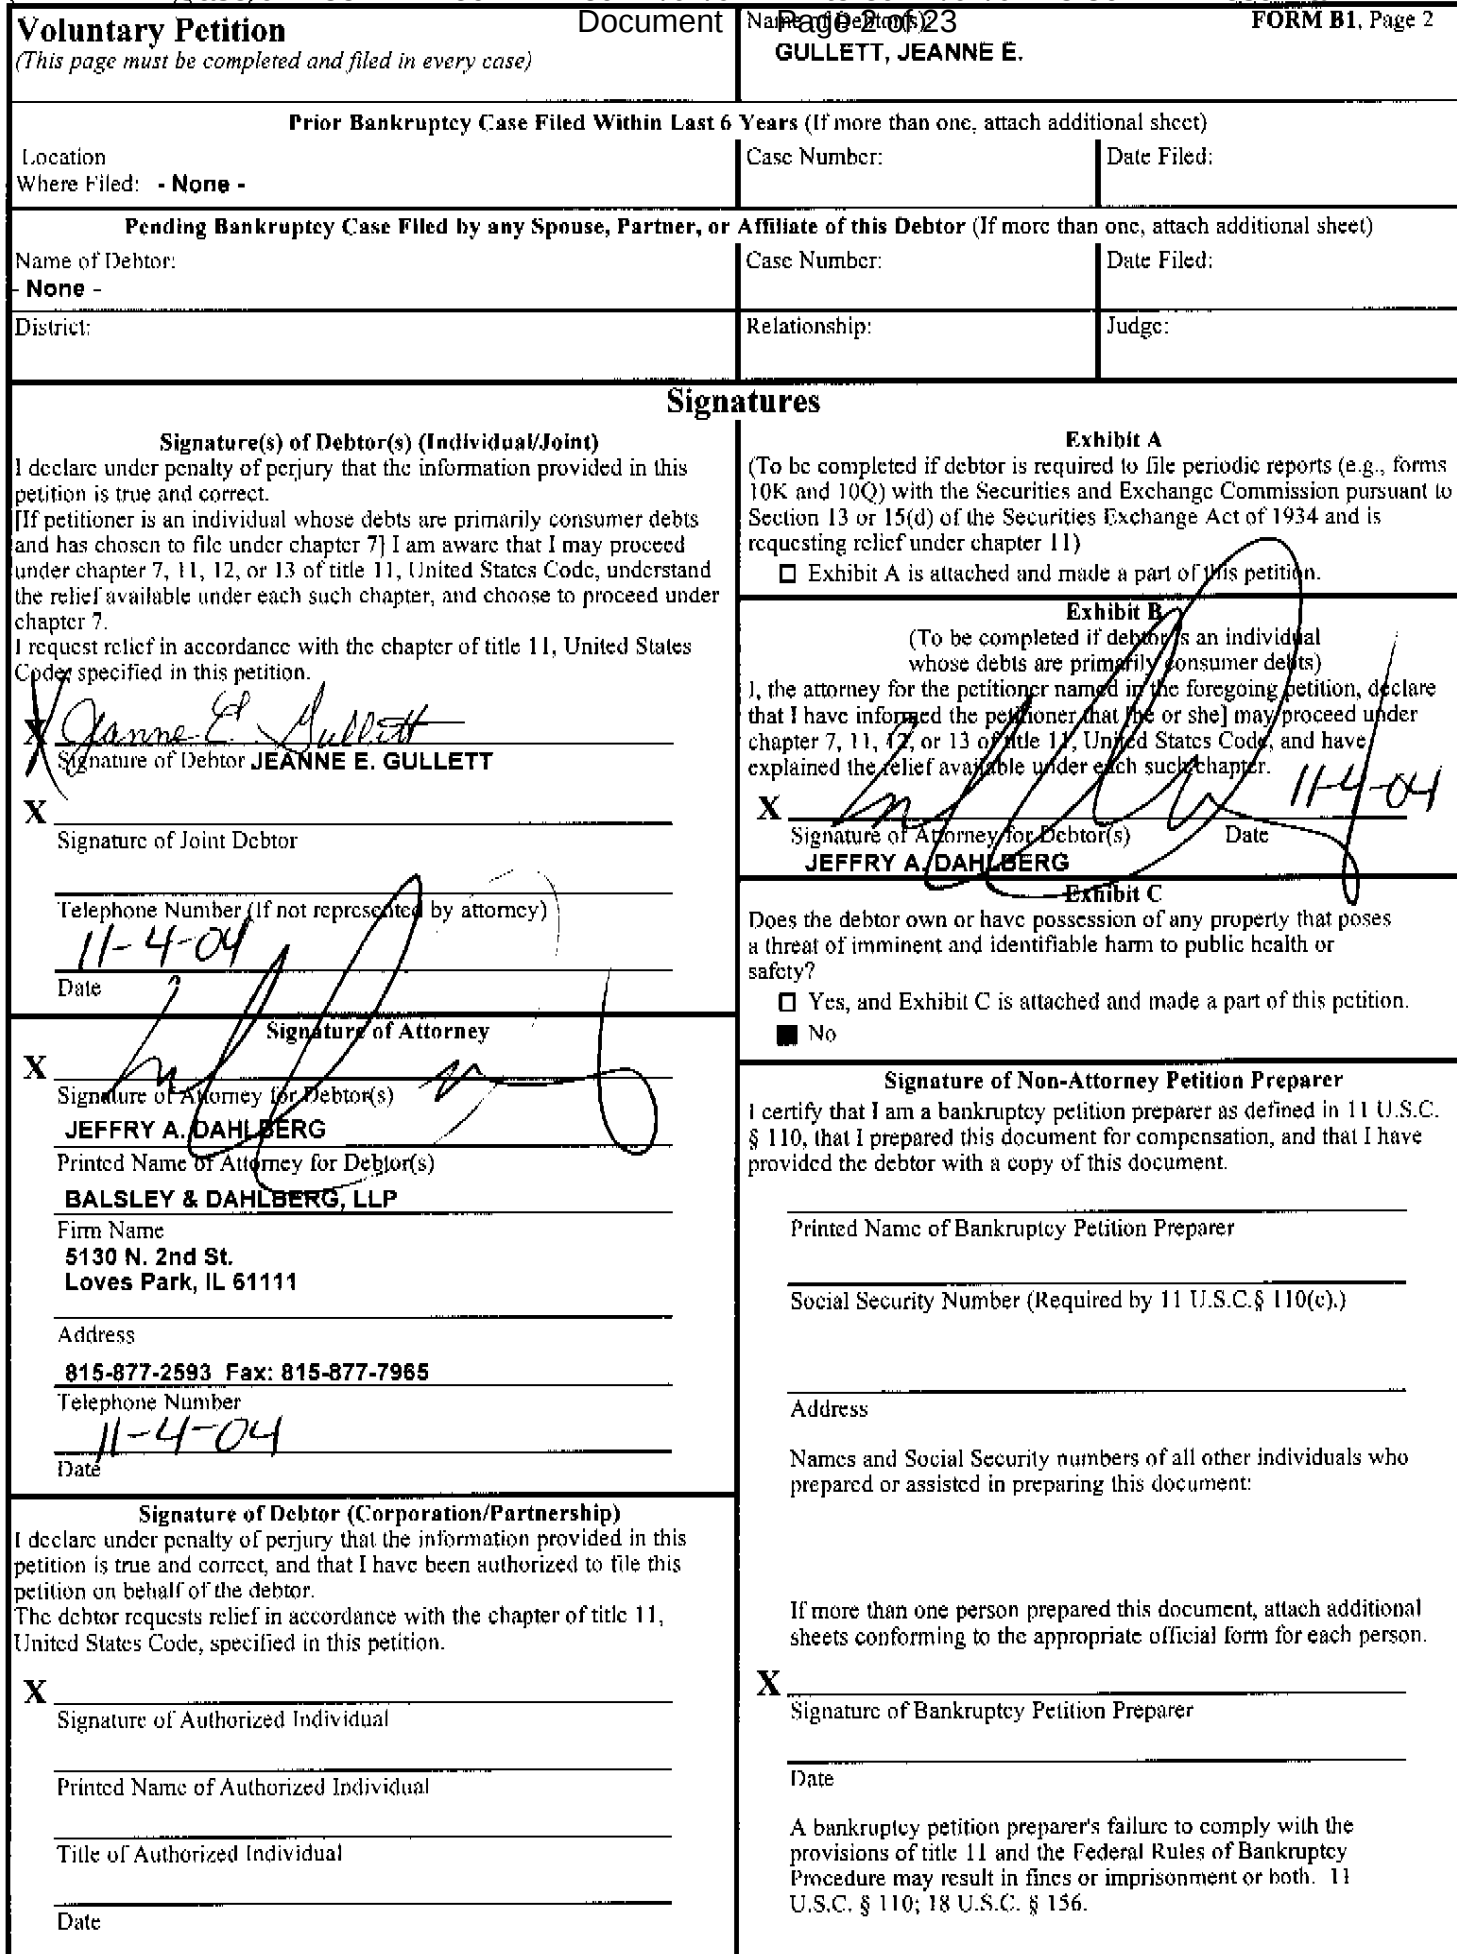 Document Page 2 of 23
Voluntary Petition
(This page must be completed and filed in every case)
Name of Debtor(s):
GULLETT, JEANNE E.
FORM B1, Page 2
Prior Bankruptcy Case Filed Within Last 6 Years (If more than one, attach additional sheet)
Location
Where Filed: - None -
Case Number:
Date Filed:
Pending Bankruptcy Case Filed by any Spouse, Partner, or Affiliate of this Debtor (If more than one, attach additional sheet)
Name of Debtor:
- None -
Case Number:
Date Filed:
District:
Relationship:
Judge:
Signatures
Signature(s) of Debtor(s) (Individual/Joint)
I declare under penalty of perjury that the information provided in this
petition is true and correct.
[If petitioner is an individual whose debts are primarily consumer debts
and has chosen to file under chapter 7] I am aware that I may proceed
under chapter 7, 11, 12, or 13 of title 11, United States Code, understand
the relief available under each such chapter, and choose to proceed under
chapter 7.
I request relief in accordance with the chapter of title 11, United States
Code, specified in this petition.
X Jeanne E Gullett
Signature of Debtor JEANNE E. GULLETT
X
Signature of Joint Debtor
Telephone Number (If not represented by attorney)
11-4-04
Date
Signature of Attorney
X
Signature of Attorney for Debtor(s)
JEFFRY A. DAHLBERG
Printed Name of Attorney for Debtor(s)
BALSLEY & DAHLBERG, LLP
Firm Name
5130 N. 2nd St.
Loves Park, IL 61111
Address
815-877-2593 Fax: 815-877-7965
Telephone Number
11-4-04
Date
Signature of Debtor (Corporation/Partnership)
I declare under penalty of perjury that the information provided in this
petition is true and correct, and that I have been authorized to file this
petition on behalf of the debtor.
The debtor requests relief in accordance with the chapter of title 11,
United States Code, specified in this petition.
X
Signature of Authorized Individual
Printed Name of Authorized Individual
Title of Authorized Individual
Date
Exhibit A
(To be completed if debtor is required to file periodic reports (e.g., forms
10K and 10Q) with the Securities and Exchange Commission pursuant to
Section 13 or 15(d) of the Securities Exchange Act of 1934 and is
requesting relief under chapter 11)
☐ Exhibit A is attached and made a part of this petition.
Exhibit B
(To be completed if debtor is an individual
whose debts are primarily consumer debts)
I, the attorney for the petitioner named in the foregoing petition, declare
that I have informed the petitioner that [he or she] may proceed under
chapter 7, 11, 12, or 13 of title 11, United States Code, and have
explained the relief available under each such chapter.
X 11-4-04
Signature of Attorney for Debtor(s) Date
JEFFRY A. DAHLBERG
Exhibit C
Does the debtor own or have possession of any property that poses
a threat of imminent and identifiable harm to public health or
safety?
☐ Yes, and Exhibit C is attached and made a part of this petition.
■ No
Signature of Non-Attorney Petition Preparer
I certify that I am a bankruptcy petition preparer as defined in 11 U.S.C.
§ 110, that I prepared this document for compensation, and that I have
provided the debtor with a copy of this document.
Printed Name of Bankruptcy Petition Preparer
Social Security Number (Required by 11 U.S.C.§ 110(c).)
Address
Names and Social Security numbers of all other individuals who
prepared or assisted in preparing this document:
If more than one person prepared this document, attach additional
sheets conforming to the appropriate official form for each person.
X
Signature of Bankruptcy Petition Preparer
Date
A bankruptcy petition preparer's failure to comply with the
provisions of title 11 and the Federal Rules of Bankruptcy
Procedure may result in fines or imprisonment or both. 11
U.S.C. § 110; 18 U.S.C. § 156.